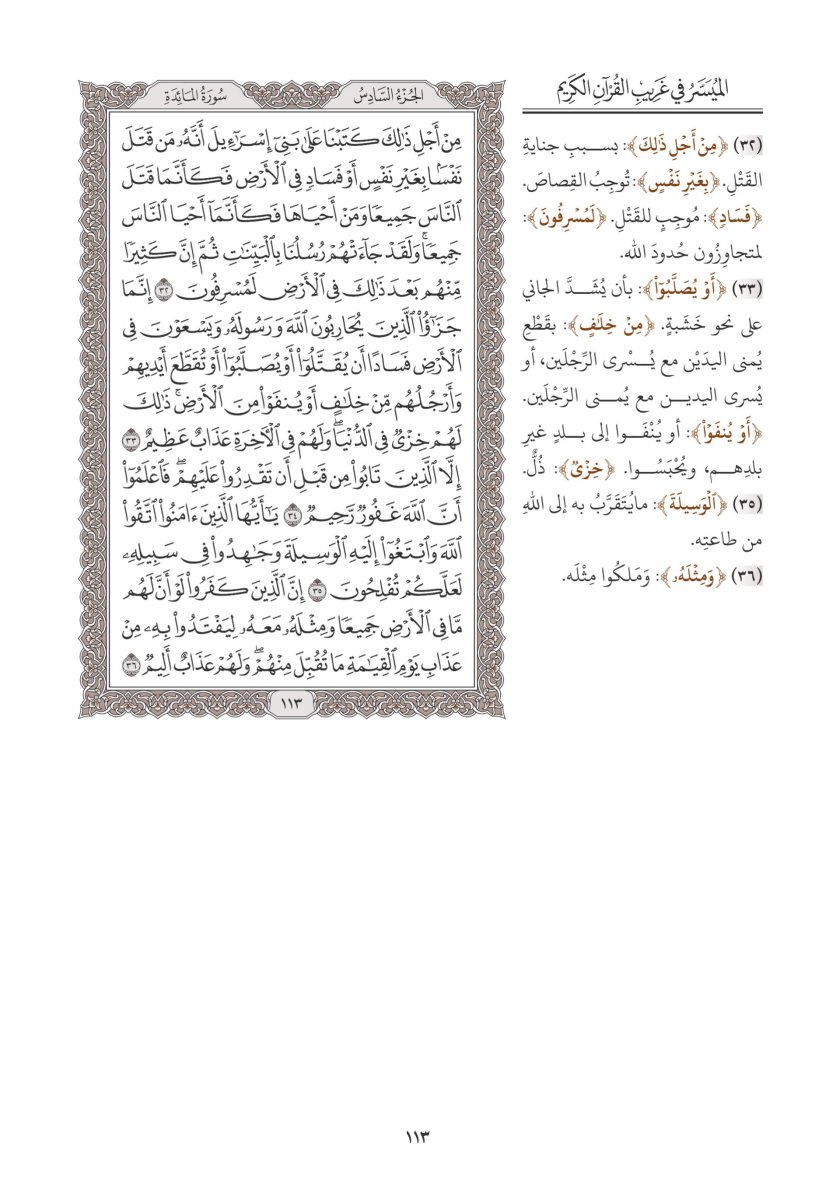 الميسر في غريب القرآن الكريم
(٣٢) ﴿مِنۡ أَجۡلِ ذَٰلِكَ﴾: بسببِ جنايةِ
القَتْلِ. ﴿بِغَيۡرِ نَفۡسٍ﴾: تُوجِبُ القِصاصَ.
﴿فَسَادٖ﴾: مُوجِبٍ للقَتْلِ. ﴿لَمُسۡرِفُونَ﴾:
لمتجاوِزُون حُدودَ الله.
(٣٣) ﴿أَوۡ يُصَلَّبُوٓاْ﴾: بأن يُشَدَّ الجاني
على نحو خَشَبةٍ. ﴿مِّنۡ خِلَٰفٍ﴾: بقَطْعِ
يُمنى اليدَيْن مع يُسْرى الرِّجْلَين، أو
يُسرى اليدين مع يُمنى الرِّجْلَين.
﴿أَوۡ يُنفَوۡاْ﴾: أو يُنْفَوا إلى بلدٍ غيرِ
بلدِهم، ويُحْبَسُوا. ﴿خِزۡيٞ﴾: ذُلٌّ.
(٣٥) ﴿ٱلۡوَسِيلَةَ﴾: مايُتَقَرَّبُ به إلى اللهِ
من طاعتِه.
(٣٦) ﴿وَمِثۡلَهُۥ﴾: وَمَلكُوا مِثْلَه.
سُورَةُ المَائِدَةِ الجُزْءُ السَّادِسُ
مِنۡ أَجۡلِ ذَٰلِكَ كَتَبۡنَا عَلَىٰ بَنِيٓ إِسۡرَٰٓءِيلَ أَنَّهُۥ مَن قَتَلَ
نَفۡسَۢا بِغَيۡرِ نَفۡسٍ أَوۡ فَسَادٖ فِي ٱلۡأَرۡضِ فَكَأَنَّمَا قَتَلَ
ٱلنَّاسَ جَمِيعٗا وَمَنۡ أَحۡيَاهَا فَكَأَنَّمَآ أَحۡيَا ٱلنَّاسَ
جَمِيعٗاۚ وَلَقَدۡ جَآءَتۡهُمۡ رُسُلُنَا بِٱلۡبَيِّنَٰتِ ثُمَّ إِنَّ كَثِيرٗا
مِّنۡهُم بَعۡدَ ذَٰلِكَ فِي ٱلۡأَرۡضِ لَمُسۡرِفُونَ ٣٢ إِنَّمَا
جَزَٰٓؤُاْ ٱلَّذِينَ يُحَارِبُونَ ٱللَّهَ وَرَسُولَهُۥ وَيَسۡعَوۡنَ فِي
ٱلۡأَرۡضِ فَسَادًا أَن يُقَتَّلُوٓاْ أَوۡ يُصَلَّبُوٓاْ أَوۡ تُقَطَّعَ أَيۡدِيهِمۡ
وَأَرۡجُلُهُم مِّنۡ خِلَٰفٍ أَوۡ يُنفَوۡاْ مِنَ ٱلۡأَرۡضِۚ ذَٰلِكَ
لَهُمۡ خِزۡيٞ فِي ٱلدُّنۡيَاۖ وَلَهُمۡ فِي ٱلۡأٓخِرَةِ عَذَابٌ عَظِيمٌ ٣٣
إِلَّا ٱلَّذِينَ تَابُواْ مِن قَبۡلِ أَن تَقۡدِرُواْ عَلَيۡهِمۡۖ فَٱعۡلَمُوٓاْ
أَنَّ ٱللَّهَ غَفُورٞ رَّحِيمٞ ٣٤ يَٰٓأَيُّهَا ٱلَّذِينَ ءَامَنُواْ ٱتَّقُواْ
ٱللَّهَ وَٱبۡتَغُوٓاْ إِلَيۡهِ ٱلۡوَسِيلَةَ وَجَٰهِدُواْ فِي سَبِيلِهِۦ
لَعَلَّكُمۡ تُفۡلِحُونَ ٣٥ إِنَّ ٱلَّذِينَ كَفَرُواْ لَوۡ أَنَّ لَهُم
مَّا فِي ٱلۡأَرۡضِ جَمِيعٗا وَمِثۡلَهُۥ مَعَهُۥ لِيَفۡتَدُواْ بِهِۦ مِنۡ
عَذَابِ يَوۡمِ ٱلۡقِيَٰمَةِ مَا تُقُبِّلَ مِنۡهُمۡۖ وَلَهُمۡ عَذَابٌ أَلِيمٞ ٣٦
١١٣
١١٣